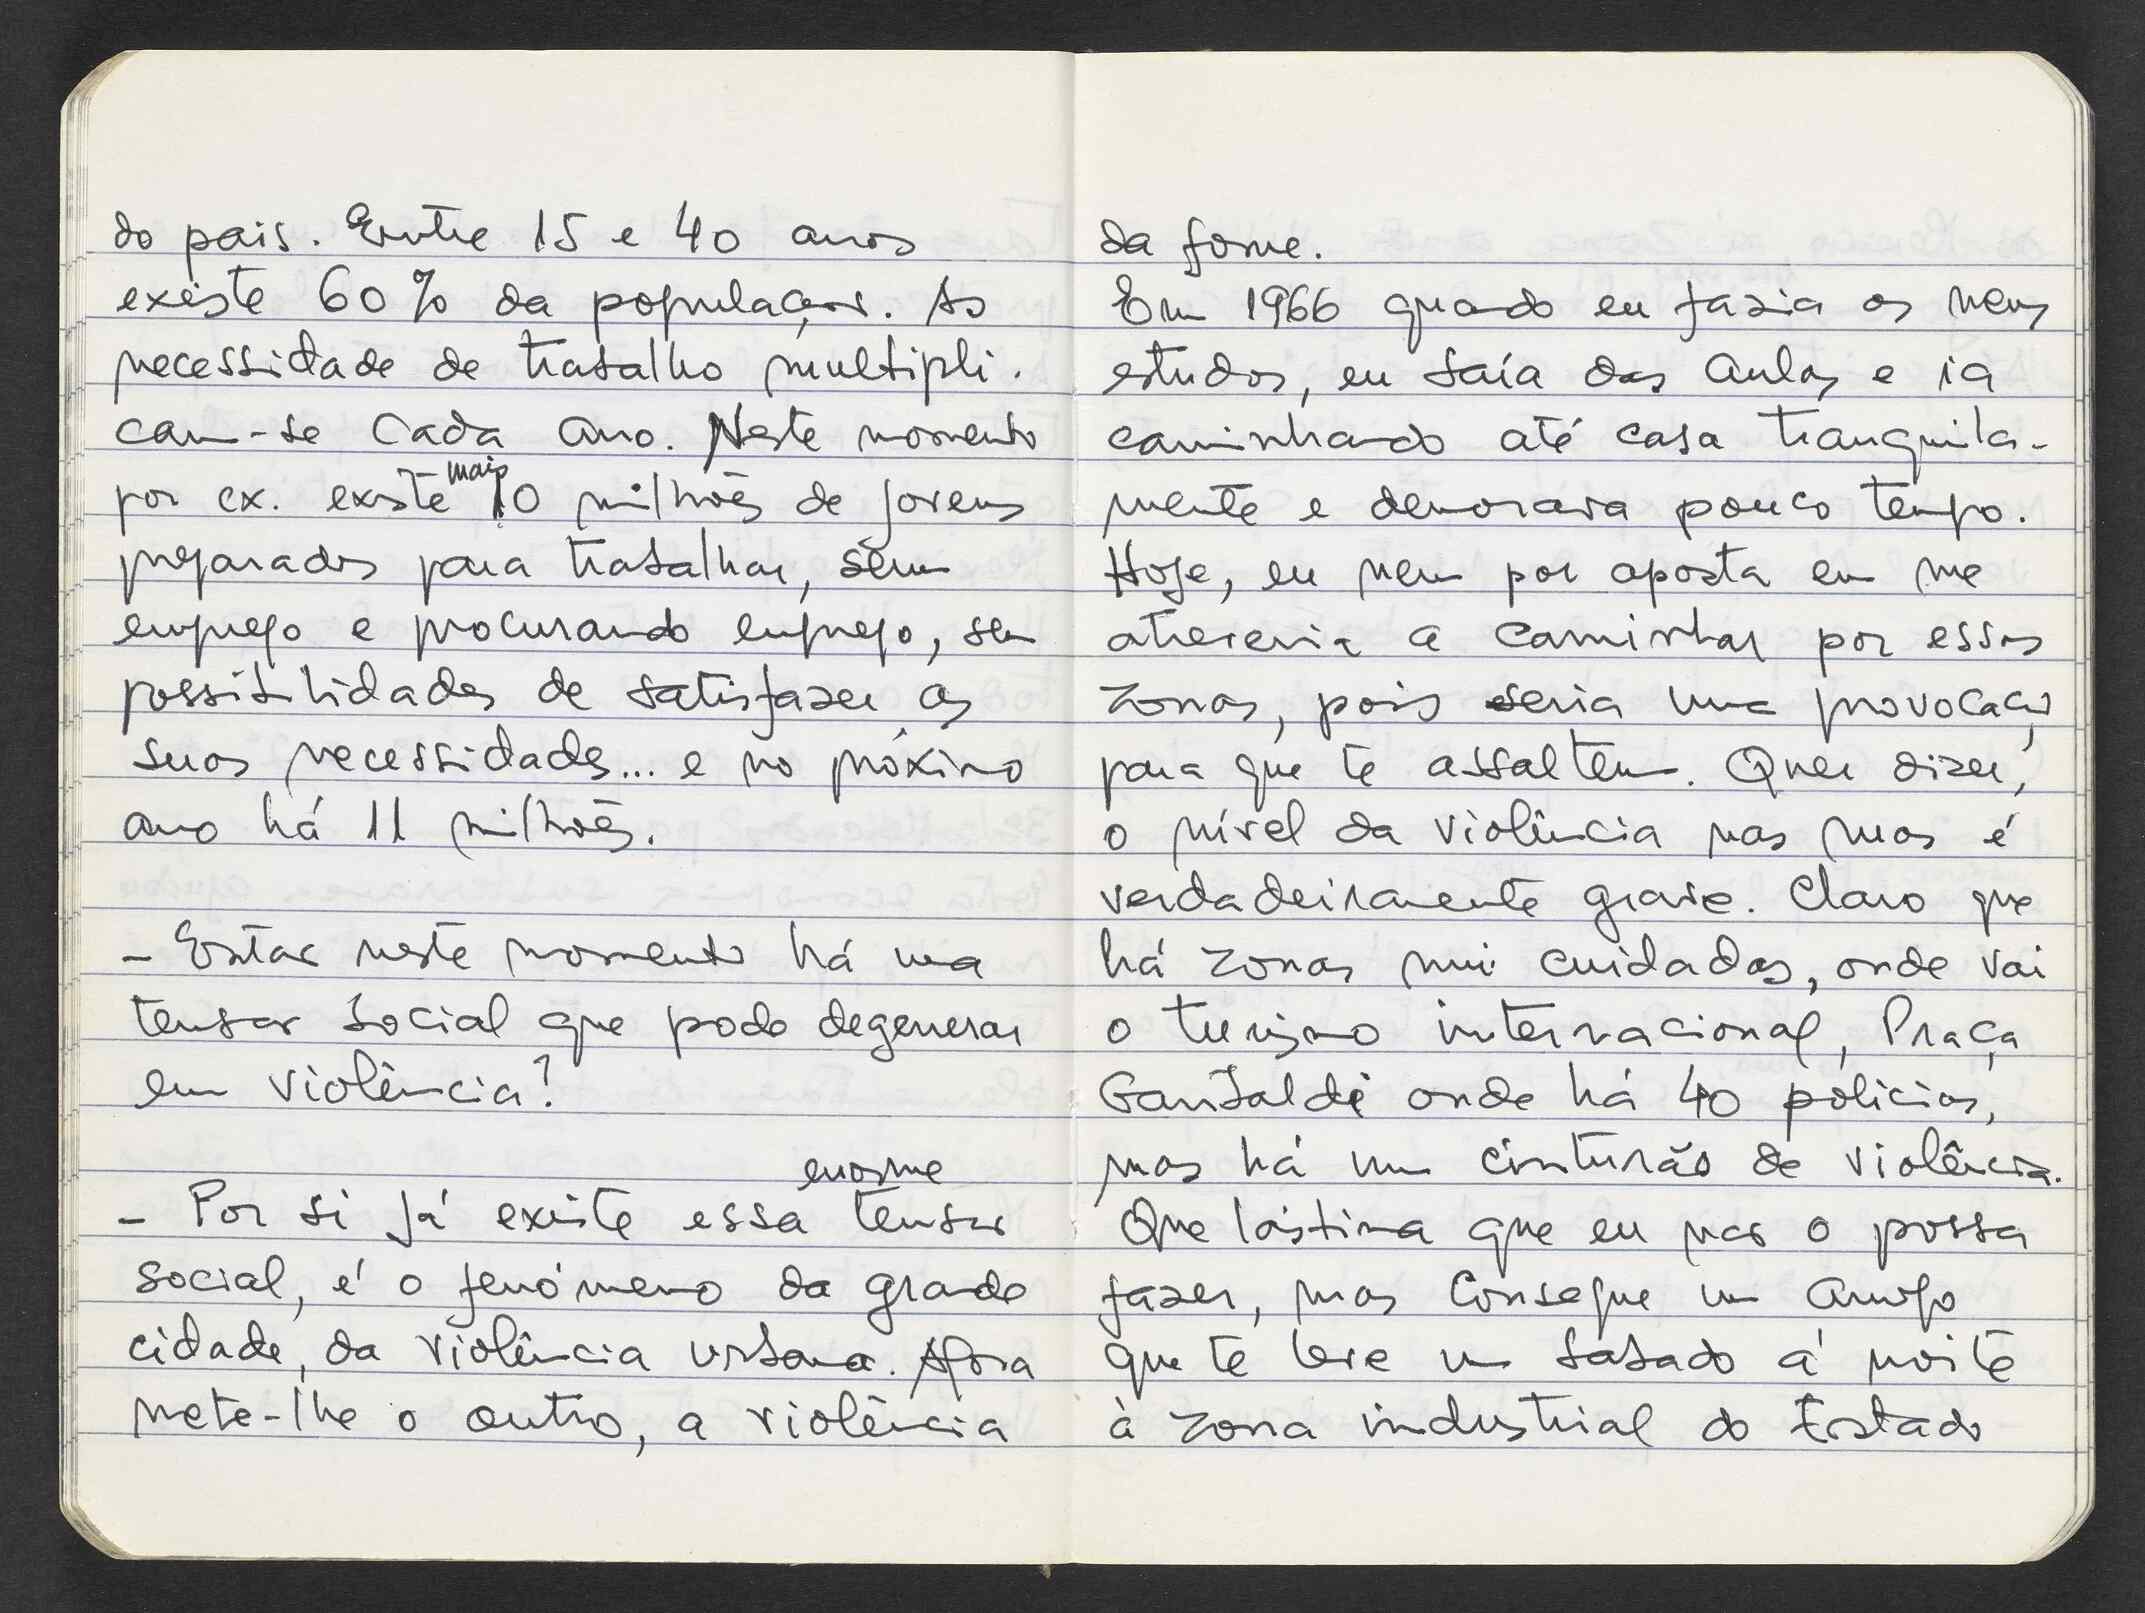 do pais. Entre 15 e 40 anos
existe 60% da população. As
necessidade de trabalho multipli-
cam-se cada ano. Neste momento
por ex. existe mais 10 milhões de jovens
preparados para trabalhar, sem
emprego e procurando emprego, sem
possibilidades de satisfazer as
suas necessidades... e no próximo
ano há 11 milhões.
- Entao neste momento há uma
tensao social que pode degenerar
em violência?
enorme
- Por si já existe essa tensao
social, é o fenómeno da grande
cidade, da violência urbana. Agora
mete-lhe o outro, a violência
da fome.
Em 1966 quando eu fazia os meus
estudos, eu saía das aulas e ia
caminhando até casa tranquila-
mente e demorava pouco tempo.
Hoje, eu nem por aposta eu me
atreveria a caminhar por essas
zonas, pois seria uma provocação
para que te assaltem. Quer dizer,
o nível da violência nas ruas é
verdadeiramente grave. Claro que
há zonas mui cuidadas, onde vai
o turismo internacional, Praça
Garibaldi onde há 40 policias,
mas há um cinturão de violência.
Que lástima que eu nao o possa
fazer, mas consegue um amigo
que te leve um sabado á noite
à zona industrial do Estado